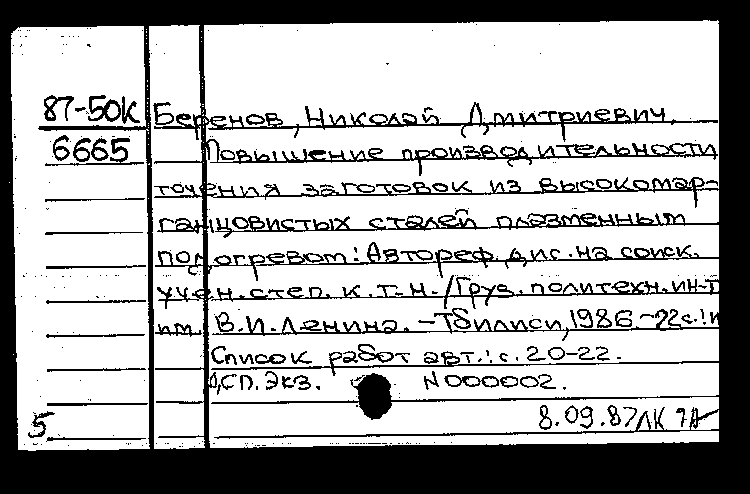 87-50К Беренов, Николай Дмитриевич.
6665 Повышение производительности
точения заготовок из высокомар-
ганцовистых сталей плазменным
подогревом: Автореф. дис. на соиск.
учен. степ. к. т. н. / Груз. политехн. ин-т
им. В. И. Ленина. – Тбилиси, 1986. – 22 с.: и
Список работ авт.: с. 20-22.
ДСП. Экз. N000002.
8.09.87 ЛК
5